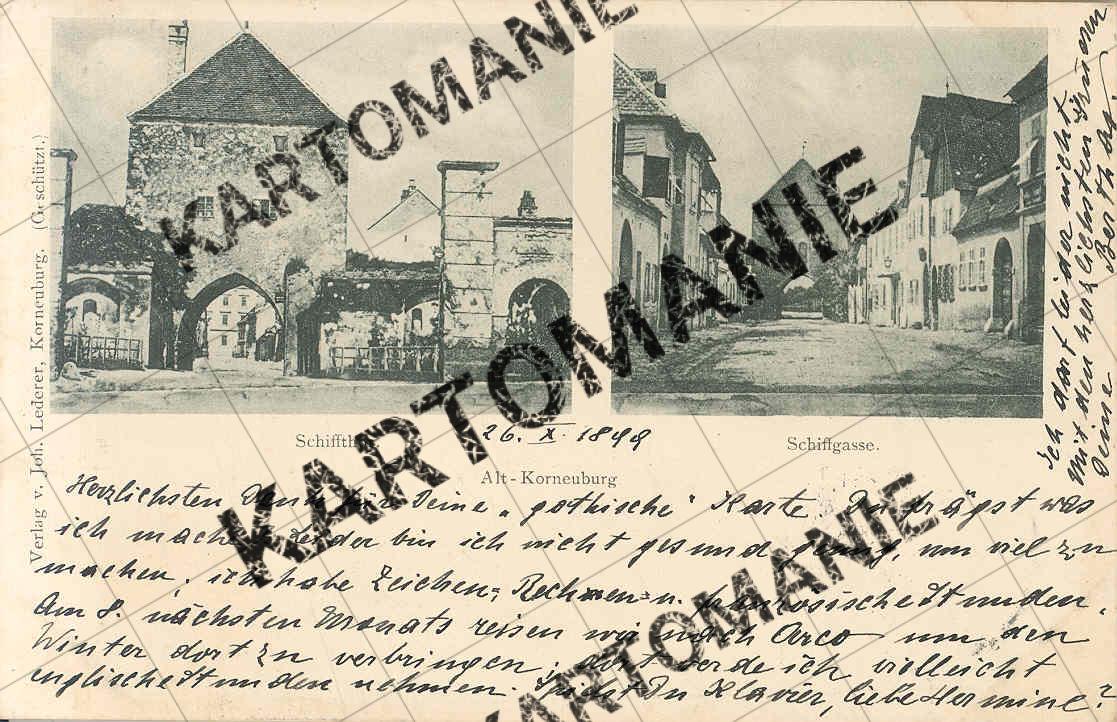 KARTOMANIE
KARTOMANIE
KARTOMANIE
KARTOMANIE
KARTOMANIE
KARTOMANIE
Verlag v. Joh. Lederer, Korneuburg. (Geschützt.)
Schiffth
26. X. 1899
Schiffgasse.
Alt-Korneuburg
Herzlichsten Dank für Deine „gothische“ Karte. Du frägst was
ich mache. Leider bin ich nicht gesund genug, um viel zu
machen; ich habe Zeichen-, Rechnen u. französische Stunden.
Am 8. nächsten Monats reisen wir nach Arco um den
Winter dort zu verbringen; dort werde ich vielleicht
englische Stunden nehmen. Spielst Du Klavier, liebe Hermine?
Ich dort leider nicht.
Mit den herzlichsten Grüßen
Deine Bertha